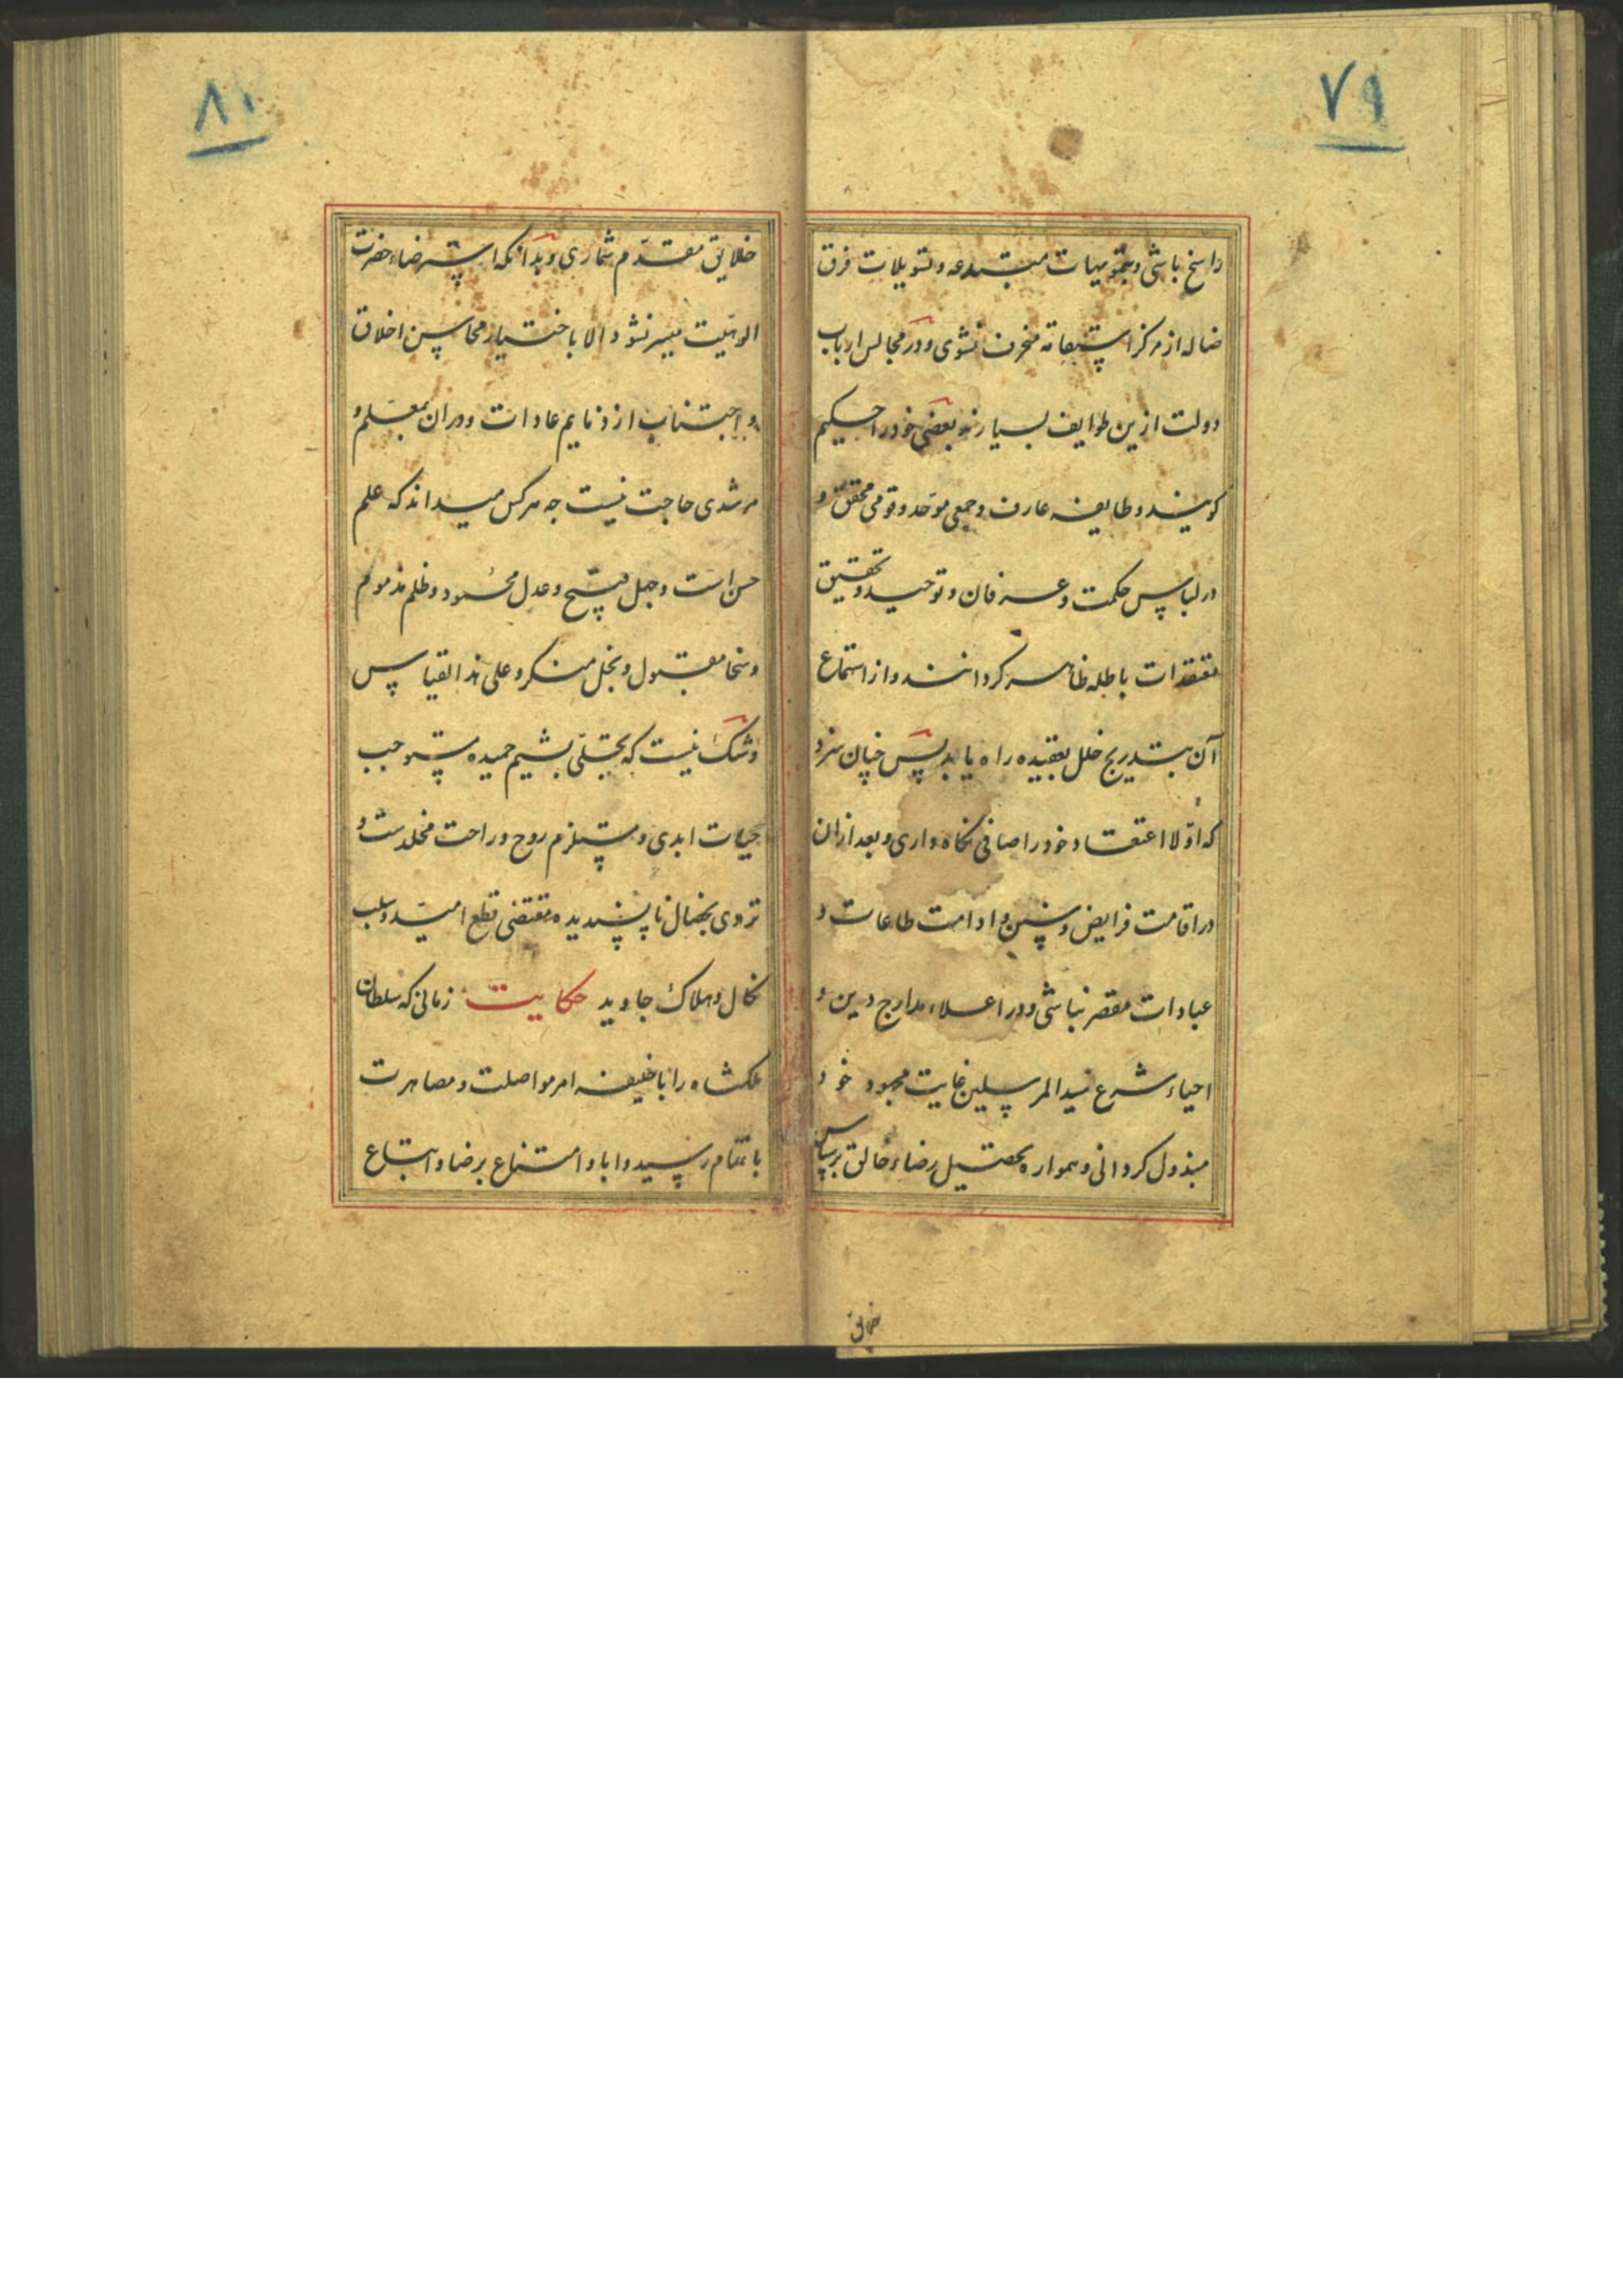 ۷۹
راسخ باشی و بتمویهات مبتدعه و تسویلات فرق
ضاله از مرکز استقامة منحرف نشوی و در مجالس ارباب
دولت ازین طوایف بسیارند بعضی خود را حکیم
کویند و طایفه عارف و جمعی موحد و قومی محقق و
در لباس حکمت و عرفان و توحید و تحقیق
معتقدات باطله ظاهر کردانند و از استماع
آن بتدریج خلل بعقیده راه یابد پس چنان سزد
که اولا اعتقاد خود را صافی نکاه داری و بعد ازان
در اقامت فرایض و سنن و ادامت طاعات و
عبادات مقصر نباشی و در اعلاء مدارج دین و
احیاء شرع سید المرسلین غایت مجهود خود
مبذول کردانی و همواره تحصیل رضاء خالق بر سپاس
خلایق
۸۰
خلایق مقدم شماری و بدانکه استرضاء حضرت
الوهیت میسر نشود الا باختیار محاسن اخلاق
و اجتناب از ذنایم عادات و دران بمعلم و
مرشدی حاجت نیست چه هرکس میداند که علم
حسن است و جهل قبیح و عدل محمود و ظلم مذموم
و سخا مقبول و بخل منکر و علی هذا القیاس
و شک نیست که تحلی بشیم حمیده مستوجب
حیات ابدی و مستلزم روح و راحت مخلدست و
تردی بخصال ناپسندیده مقتضی قطع امید و سلب
نکال و هلاک جاوید حکایت زمانی که سلطان
ملکشاه را با خلیفه امر مواصلت و مصاهرت
باتمام رسید و ابا و امتناع برضا و اتباع